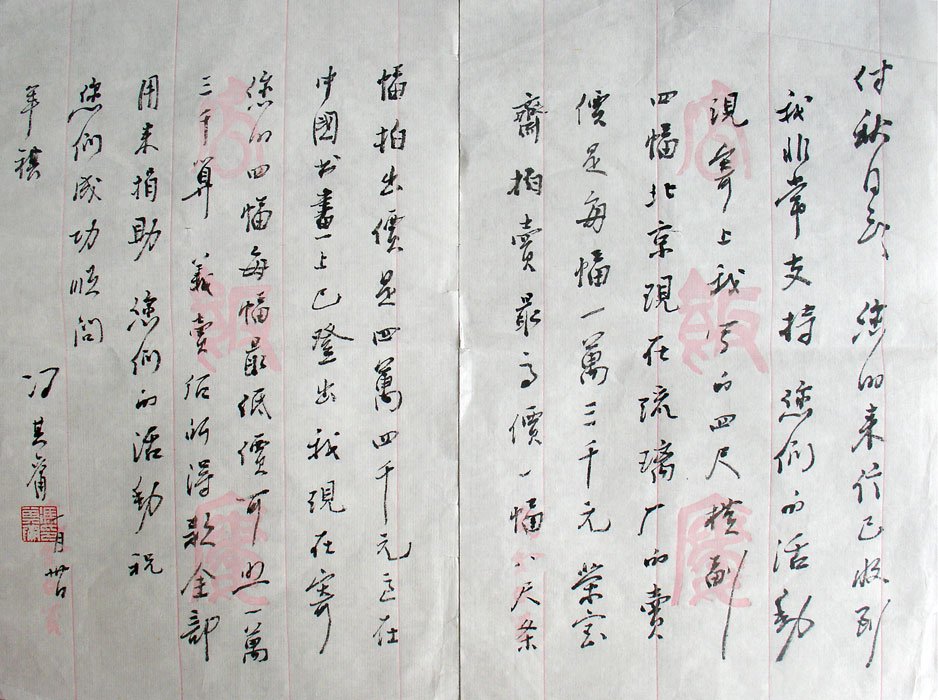 付秋日 您的来信已收到
我非常支持 您们的活動
現寄上我写的四尺横副
四幅北京現在琉璃厂的賣
價是每幅一萬三千元榮宝
齋拍賣最高價一幅八尺条
幅拍出價是四萬四千元這在
中國书畫上已登出我現在寄
您的四幅每幅最低價可照一萬
三千算 義賣后所得款全部
用来捐助 您们的活動祝
您们成功順問
年禧
冯其庸
一月廿日